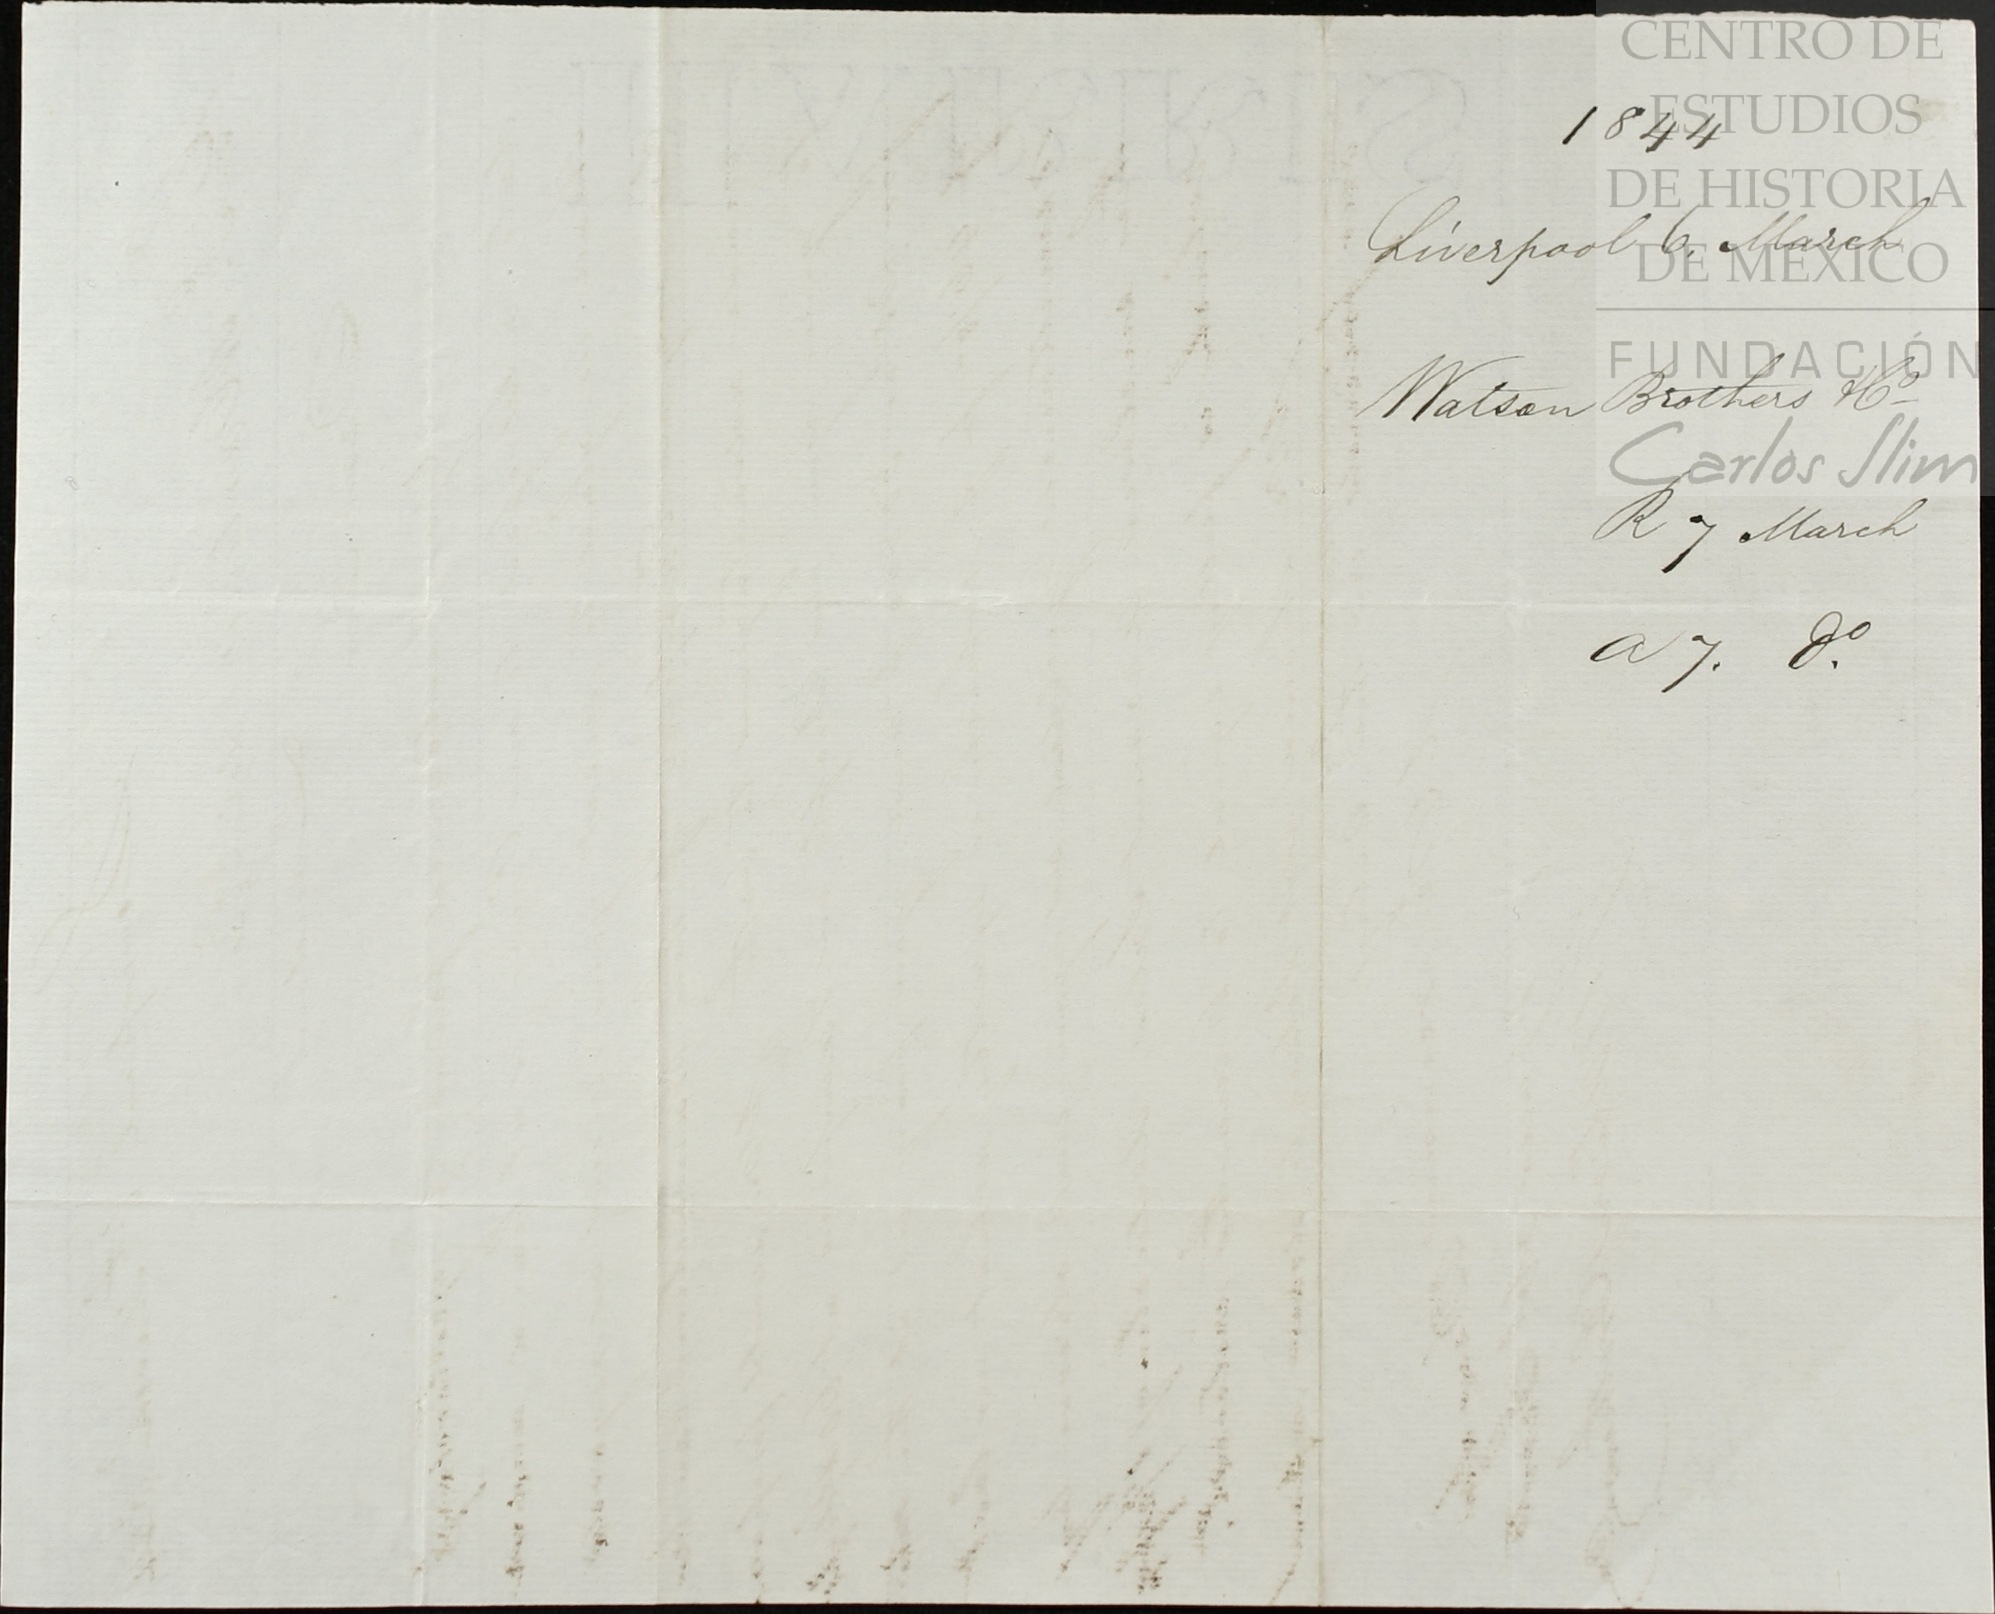 CENTRO DE
ESTUDIOS
DE HISTORIA
DE MÉXICO
FUNDACIÓN
Carlos Slim
1844
Liverpool 6. March
Watson Brothers & Co
R 7 March
a 7. do.